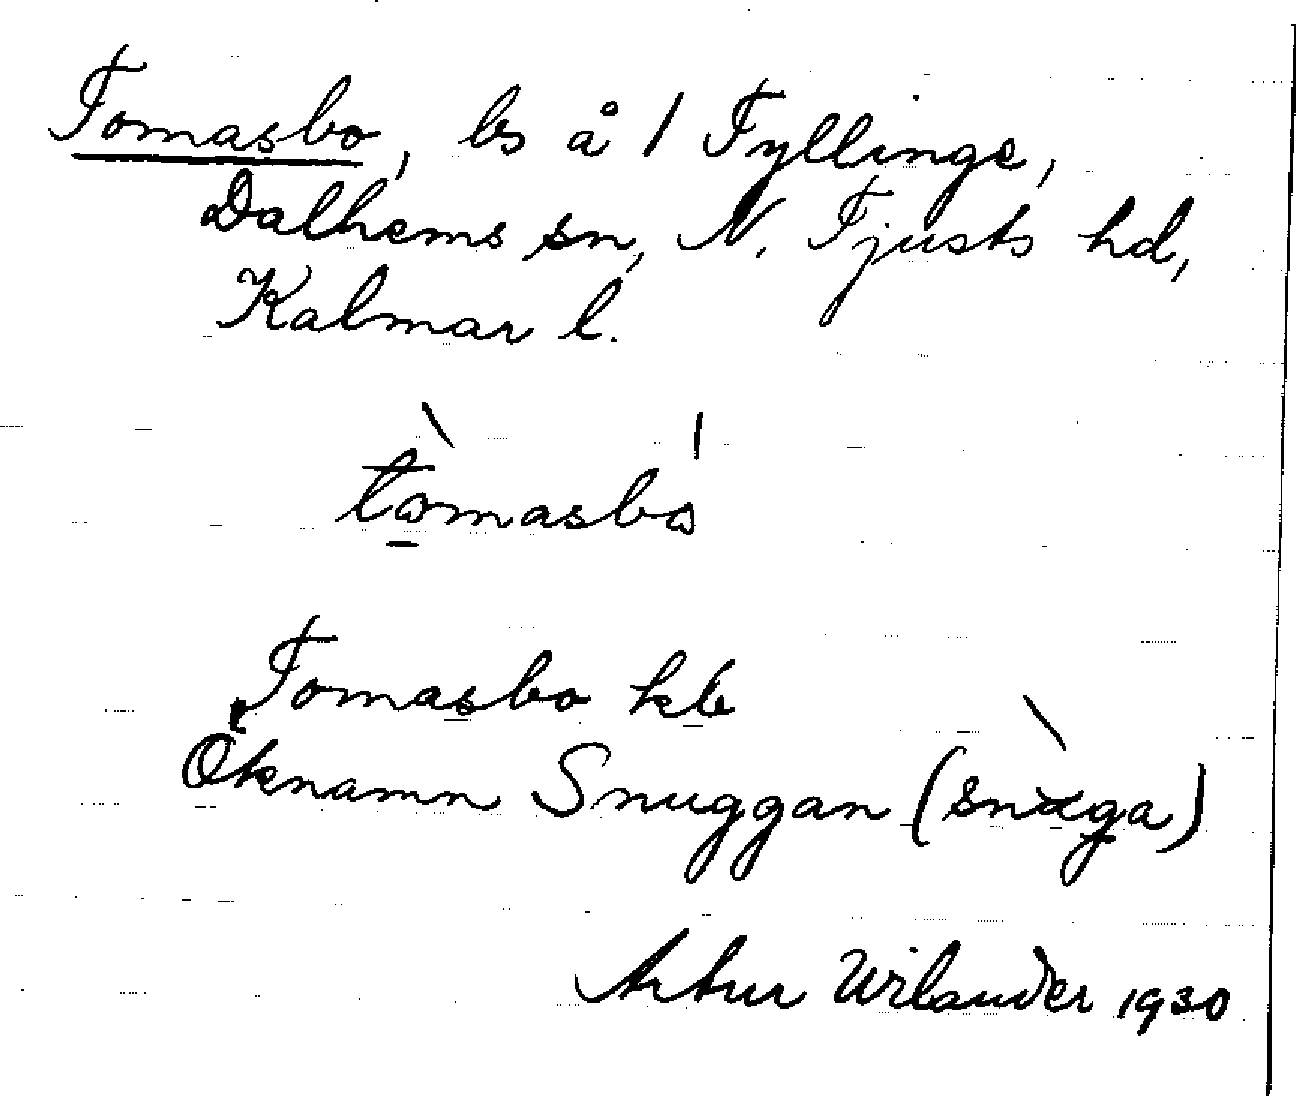 Tomasbo, ls å 1 Fyllinge,
Dalhems sn, N. Tjusts hd,
Kalmar l.
tomasbo
Tomasbo
Öknamn Snuggan
Artur Wilander 1930